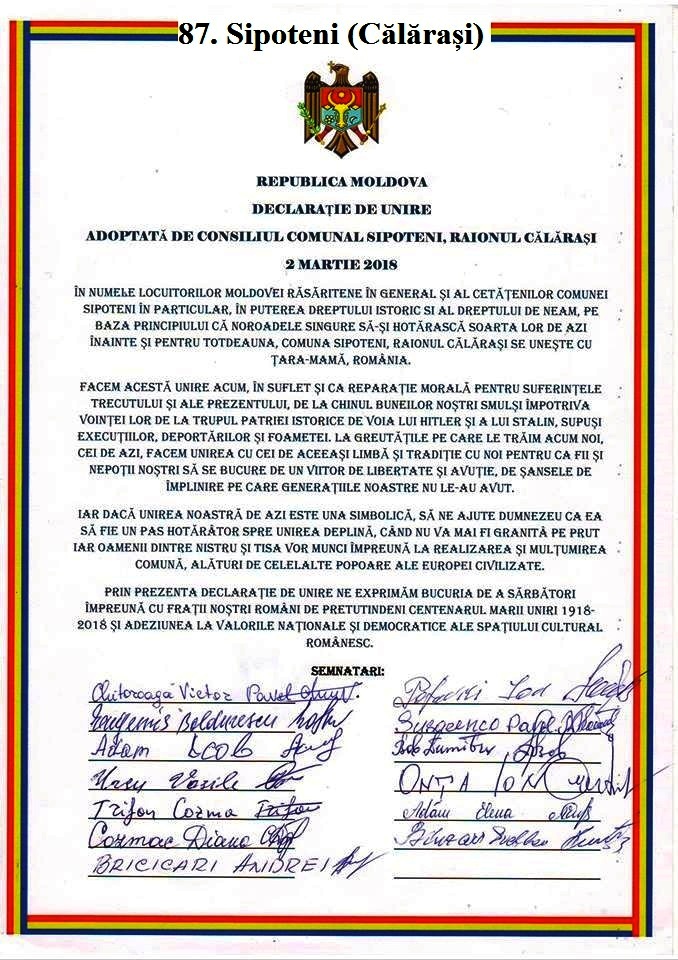 87. Sipoteni (Călărași)
REPUBLICA MOLDOVA
DECLARAȚIE DE UNIRE
ADOPTATĂ DE CONSILIUL COMUNAL SIPOTENI, RAIONUL CĂLĂRAȘI
2 MARTIE 2018
ÎN NUMELE LOCUITORILOR MOLDOVEI RĂSĂRITENE ÎN GENERAL ȘI AL CETĂȚENILOR COMUNEI
SIPOTENI ÎN PARTICULAR, ÎN PUTEREA DREPTULUI ISTORIC SI AL DREPTULUI DE NEAM, PE
BAZA PRINCIPIULUI CĂ NOROADELE SINGURE SĂ-ȘI HOTĂRASCĂ SOARTA LOR DE AZI
ÎNAINTE ȘI PENTRU TOTDEAUNA, COMUNA SIPOTENI, RAIONUL CĂLĂRAȘI SE UNEȘTE CU
ȚARA-MAMĂ, ROMÂNIA.
FACEM ACESTĂ UNIRE ACUM, ÎN SUFLET ȘI CA REPARAȚIE MORALĂ PENTRU SUFERINȚELE
TRECUTULUI ȘI ALE PREZENTULUI, DE LA CHINUL BUNEILOR NOȘTRI SMULȘI ÎMPOTRIVA
VOINȚEI LOR DE LA TRUPUL PATRIEI ISTORICE DE VOIA LUI HITLER ȘI A LUI STALIN, SUPUȘI
EXECUȚIILOR, DEPORTĂRILOR ȘI FOAMETEI. LA GREUTĂȚILE PE CARE LE TRĂIM ACUM NOI,
CEI DE AZI, FACEM UNIREA CU CEI DE ACEEAȘI LIMBĂ ȘI TRADIȚIE CU NOI PENTRU CA FII ȘI
NEPOȚII NOȘTRI SĂ SE BUCURE DE UN VIITOR DE LIBERTATE ȘI AVUȚIE, DE ȘANSELE DE
ÎMPLINIRE PE CARE GENERAȚIILE NOASTRE NU LE-AU AVUT.
IAR DACĂ UNIREA NOASTRĂ DE AZI ESTE UNA SIMBOLICĂ, SĂ NE AJUTE DUMNEZEU CA EA
SĂ FIE UN PAS HOTĂRÂTOR SPRE UNIREA DEPLINĂ, CÂND NU VA MAI FI GRANITĂ PE PRUT
IAR OAMENII DINTRE NISTRU ȘI TISA VOR MUNCI ÎMPREUNĂ LA REALIZAREA ȘI MULȚUMIREA
COMUNĂ, ALĂTURI DE CELELALTE POPOARE ALE EUROPEI CIVILIZATE.
PRIN PREZENTA DECLARAȚIE DE UNIRE NE EXPRIMĂM BUCURIA DE A SĂRBĂTORI
ÎMPREUNĂ CU FRAȚII NOȘTRI ROMÂNI DE PRETUTINDENI CENTENARUL MARII UNIRI 1918-
2018 ȘI ADEZIUNEA LA VALORILE NAȚIONALE ȘI DEMOCRATICE ALE SPAȚIULUI CULTURAL
ROMÂNESC.
SEMNATARI:
Chitoroagă Victor Pavel
Ion
Boldurescu
Pavel
Adam Iacob
Bob Dumitru
Ursu Vasile
ONȚA ION
Trifon Cozma
Adam Elena
Cozmac Diana
BRICICARI ANDREI